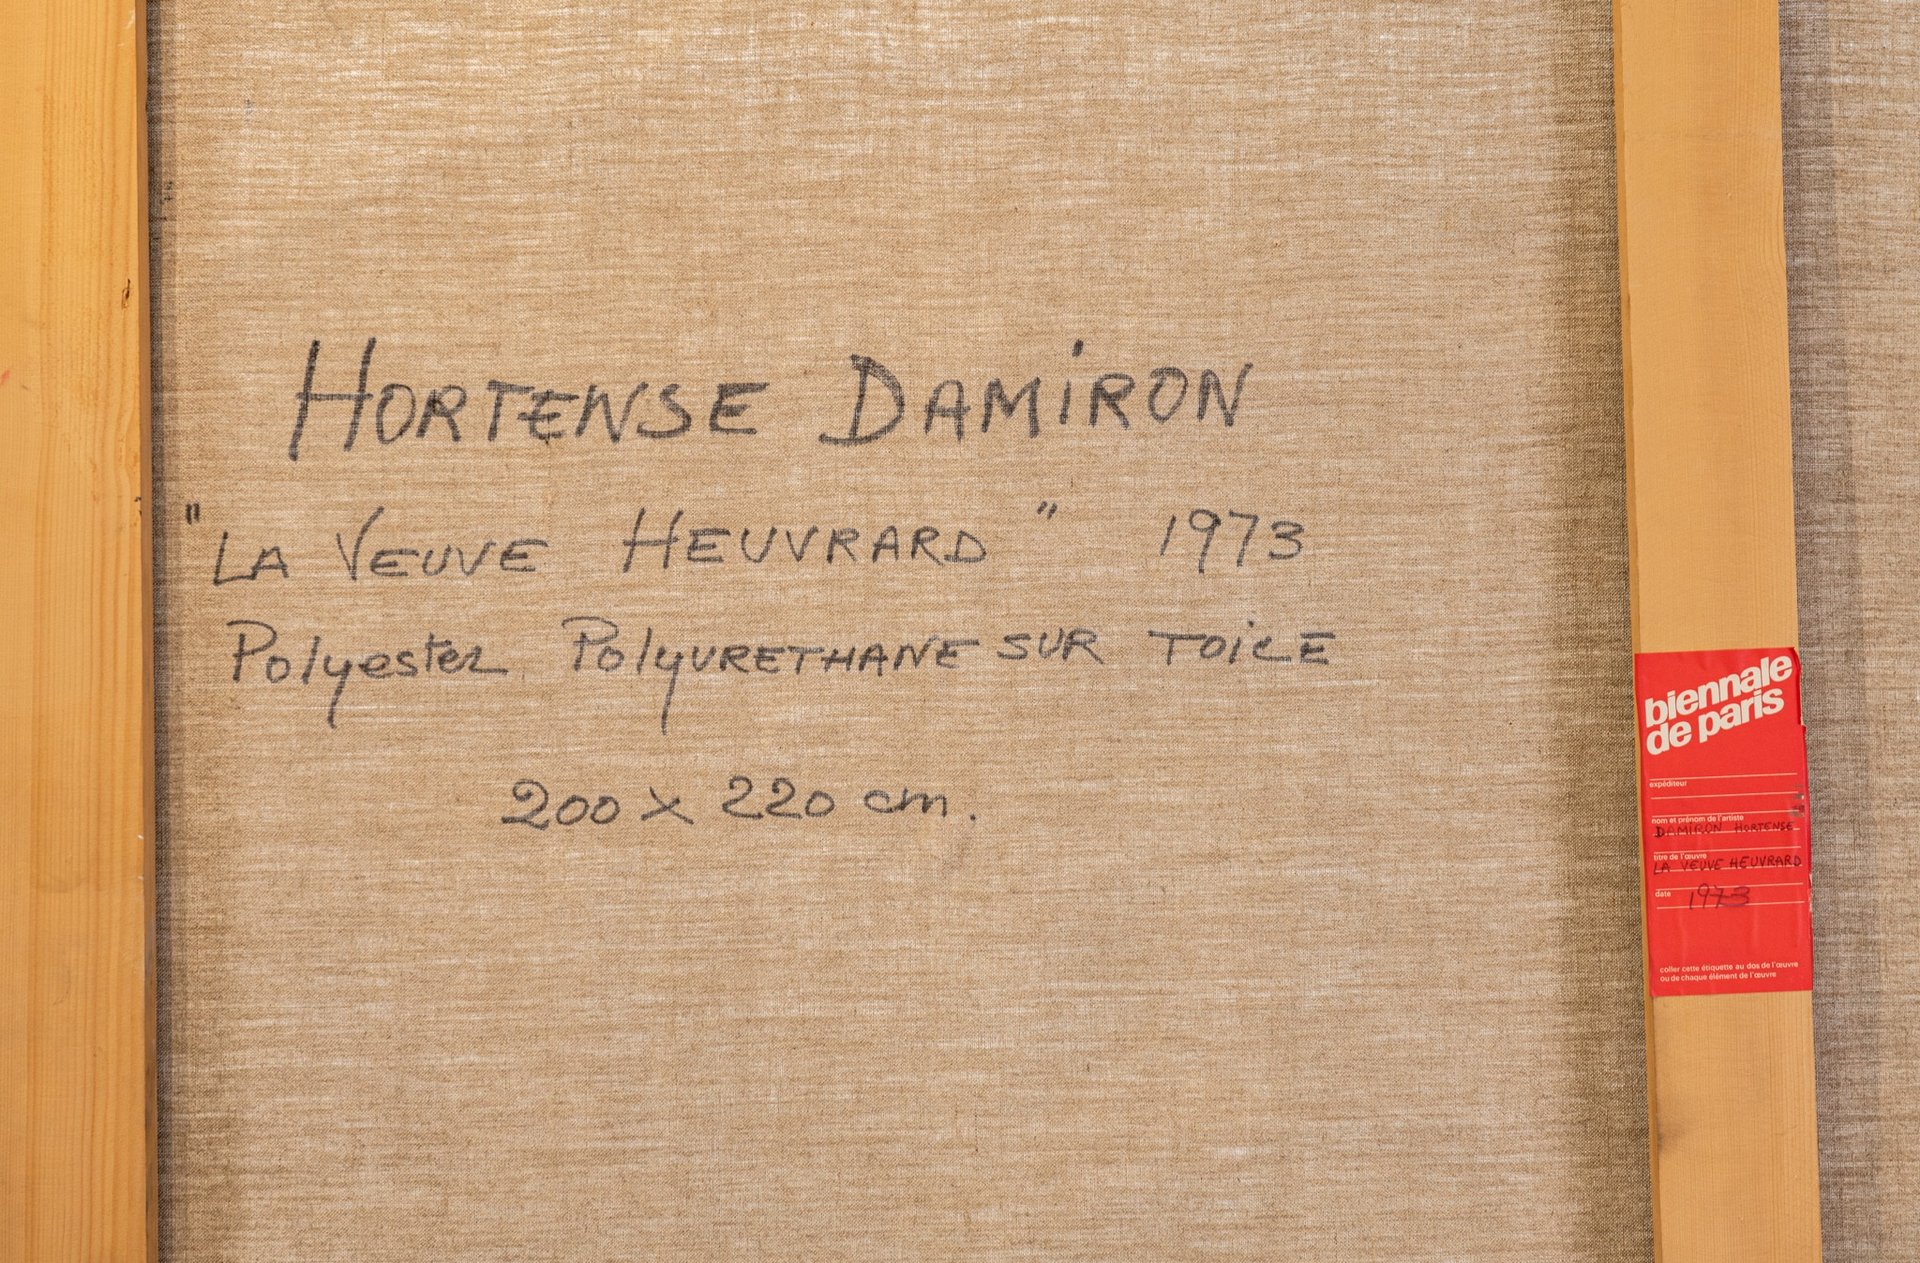 HORTENSE DAMIRON
"LA VEUVE HEUVRARD" 1973
Polyester POLYURETHANE SUR TOILE
200 x 220 cm.
biennale
de paris
expéditeur
nom et prénom de l'artiste
DAMIRON HORTENSE
titre de l'œuvre
LA VEUVE HEUVRARD
date 1973
coller cette étiquette au dos de l'œuvre
ou de chaque élément de l'œuvre